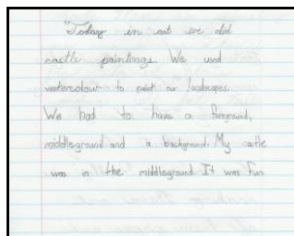 Today in art we did
castle paintings. We used
watercolour to paint our landscapes.
We had to have a foreground,
middleground and a background. My castle
was in the middleground. It was fun